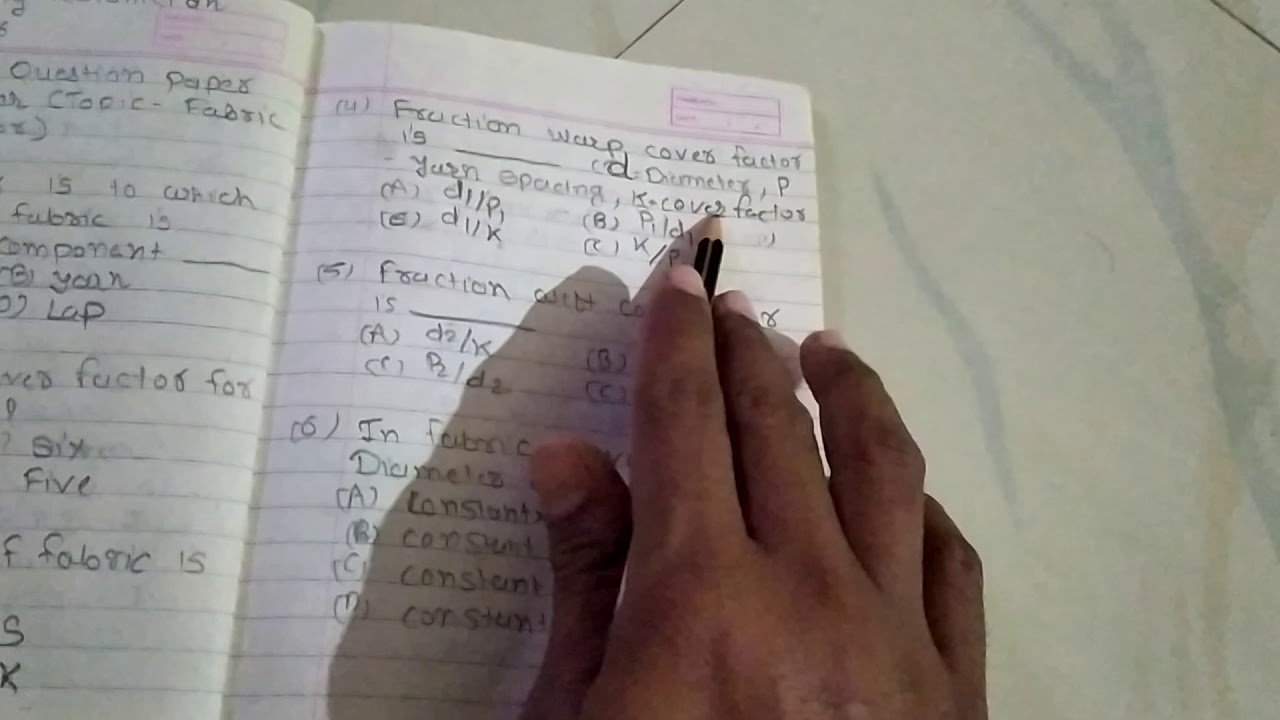 Question Paper
(Topic - Fabric
is to which
fabric is
component ____
(B) yarn
Lap
factor for
Six
Five
fabric is
S
K
(4) Fraction warp cover factor
is ____ (d=Diameter, P
- Yarn spacing, K=cover factor
(A) d1/P1 (B) P1/d1
d1/K (C) K/P
(5) Fraction weft
is ____
(A) d2/K (B)
(C) P2/d2 (C)
(6) In fabric
Diameter
(A) constant
(B) constant
(C) constant
(D) constant